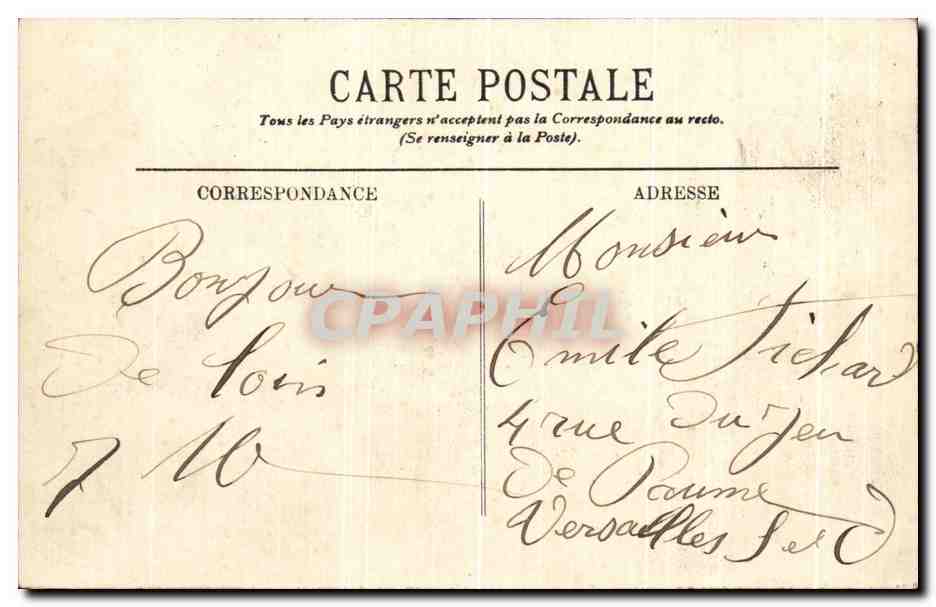 CARTE POSTALE
Tous les Pays étrangers n'acceptent pas la Correspondance au recto.
(Se renseigner à la Poste).
CORRESPONDANCE
Bonjour
De loin
ADRESSE
Monsieur
Emile
4 rue Du Jeu
De Paume
Versailles S et O
CPAPHIL